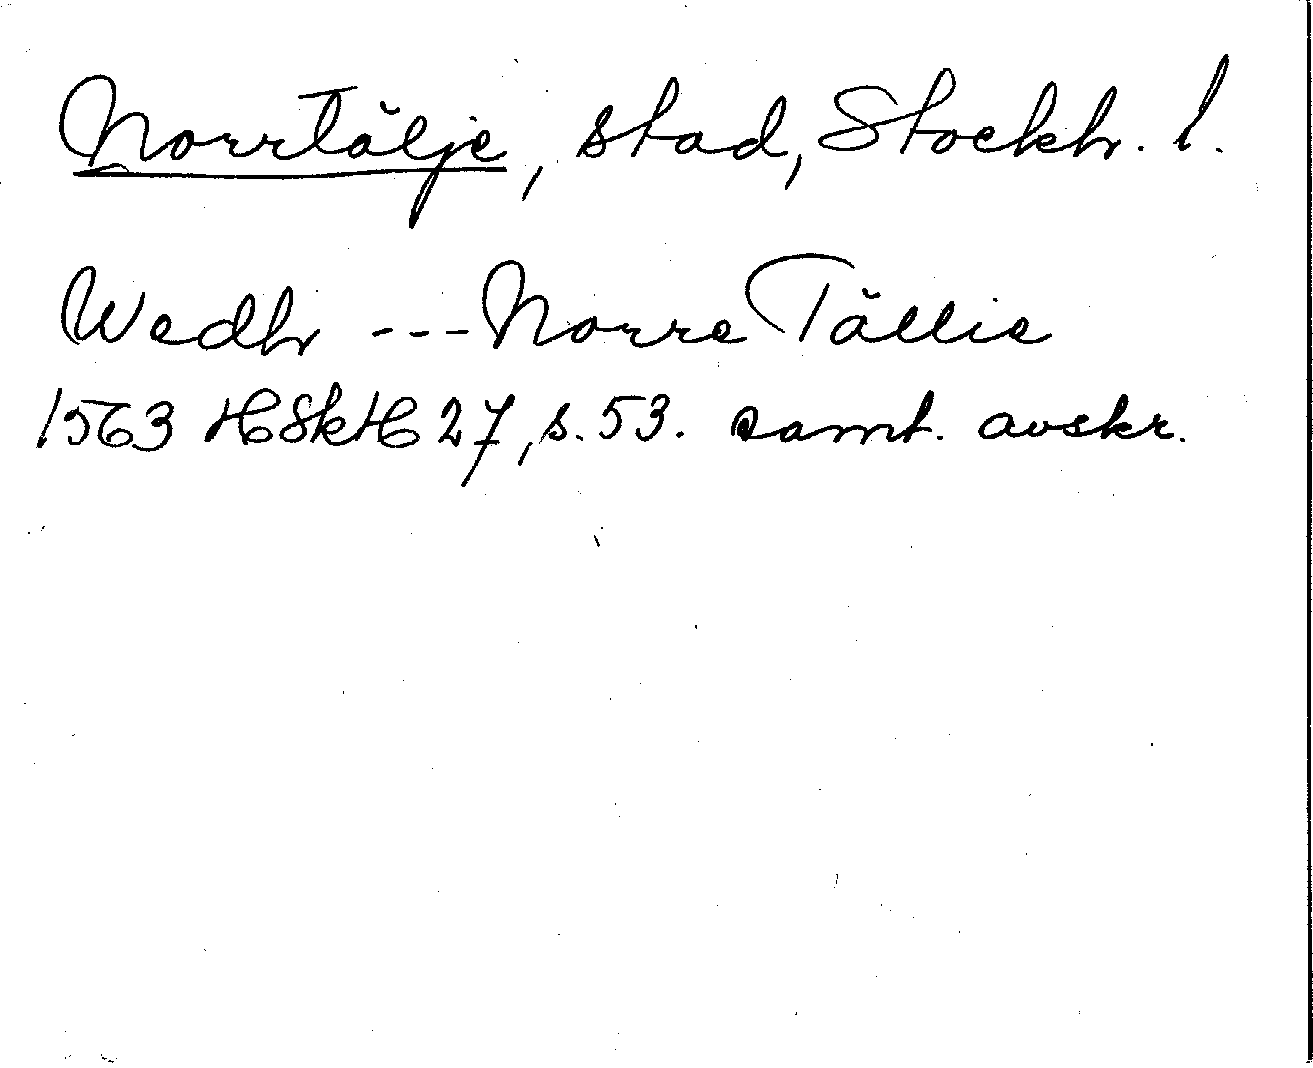 Norrtälje, stad, Stockh. l.
Wedhr --- Norre Tällie
1563 HSkH 27, s. 53. samt. avskr.